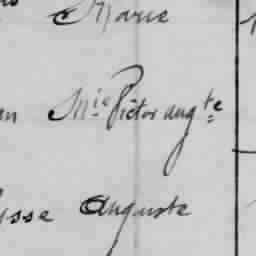 Marie
Mie Victor augte
sse Auguste